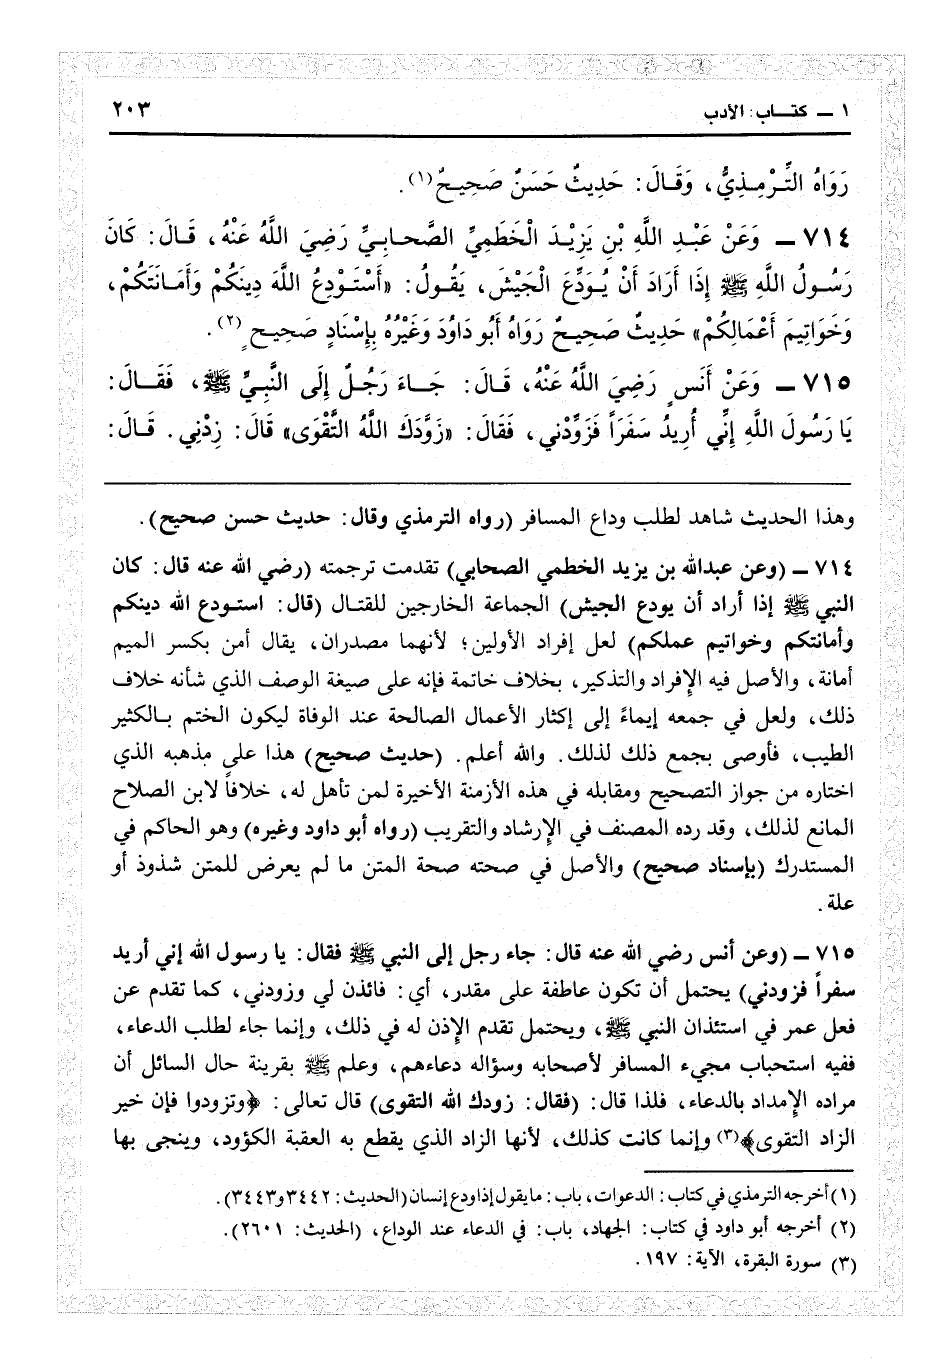 ١ ــ كتـــاب: الأدب ٢٠٣
رَوَاهُ التِّـرْمِـذِيُّ، وَقَـالَ: حَدِيـثٌ حَسَـنٌ صَحِيـحٌ(١).
٧١٤ ــ وَعَـنْ عَبْـدِ اللَّهِ بْنِ يَزِيْـدَ الْخَطَمِيِّ الصَّحـابِـيِّ رَضِيَ اللَّهُ عَنْهُ، قَـالَ: كَانَ
رَسُـولُ اللَّهِ ﷺ إِذَا أَرَادَ أَنْ يُـوَدِّعَ الْجَيْشَ، يَقُـولُ: «أَسْتَـوْدِعُ اللَّهَ دِينَكُمْ وَأَمَـانَتَكُمْ،
وَخَوَاتِيمَ أَعْمَالِكُمْ» حَدِيثٌ صَحِيحٌ رَوَاهُ أَبُو دَاوُدَ وَغَيْرُهُ بِإِسْنَادٍ صَحِيحٍ(٢).
٧١٥ ــ وَعَـنْ أَنَسٍ رَضِيَ اللَّهُ عَنْهُ، قَـالَ: جَـاءَ رَجُـلٌ إِلَى النَّبِـيِّ ﷺ، فَقَـــالَ:
يَا رَسُولَ اللَّهِ إِنِّي أُرِيدُ سَفَرَاً فَزَوِّدْنِي، فَقَالَ: «زَوَّدَكَ اللَّهُ التَّقْوَى» قَالَ: زِدْنِي. قَـالَ:
وهذا الحديث شاهد لطلب وداع المسافر (رواه الترمذي وقال: حديث حسن صحيح).
٧١٤ ــ (وعن عبدالله بن يزيد الخطمي الصحابي) تقدمت ترجمته (رضي الله عنه قال: كان
النبي ﷺ إذا أراد أن يودع الجيش) الجماعة الخارجين للقتـال (قال: استـودع الله دينكم
وأمانتكم وخواتيم عملكم) لعل إفراد الأولين؛ لأنهما مصدران، يقال أمن بكسر الميم
أمانة، والأصل فيه الإِفراد والتذكير، بخلاف خاتمة فإنه على صيغة الوصف الذي شأنه خلاف
ذلك، ولعل في جمعه إيماءً إلى إكثار الأعمال الصالحة عند الوفاة ليكون الختم بـالكثير
الطيب، فأوصى بجمع ذلك لذلك. والله أعلم. (حديث صحيح) هذا على مذهبه الذي
اختاره من جواز التصحيح ومقابله في هذه الأزمنة الأخيرة لمن تأهل له، خلافاً لابن الصلاح
المانع لذلك، وقد رده المصنف في الإِرشاد والتقريب (رواه أبو داود وغيره) وهو الحاكم في
المستدرك (بإسناد صحيح) والأصل في صحته صحة المتن ما لم يعرض للمتن شذوذ أو
علة.
٧١٥ ــ (وعن أنس رضي الله عنه قال: جاء رجل إلى النبي ﷺ فقال: يا رسول الله إني أريد
سفراً فزودني) يحتمل أن تكون عاطفة على مقدر، أي: فائذن لي وزودني، كما تقدم عن
فعل عمر في استئذان النبي ﷺ، ويحتمل تقدم الإِذن له في ذلك، وإنما جاء لطلب الدعاء،
ففيه استحباب مجيء المسافر لأصحابه وسؤاله دعاءهم، وعلم ﷺ بقرينة حال السائل أن
مراده الإِمداد بالدعاء، فلذا قال: (فقال: زودك الله التقوى) قال تعالى: ﴿وتزودوا فإن خير
الزاد التقوى﴾(٣) وإنما كانت كذلك، لأنها الزاد الذي يقطع به العقبة الكؤود، وينجى بها
(١) أخرجه الترمذي في كتاب: الدعوات، باب: ما يقول إذا ودع إنسان (الحديث: ٣٤٤٢ و٣٤٤٣).
(٢) أخرجه أبو داود في كتاب: الجهاد، باب: في الدعاء عند الوداع، (الحديث: ٢٦٠١).
(٣) سورة البقرة، الآية: ١٩٧.